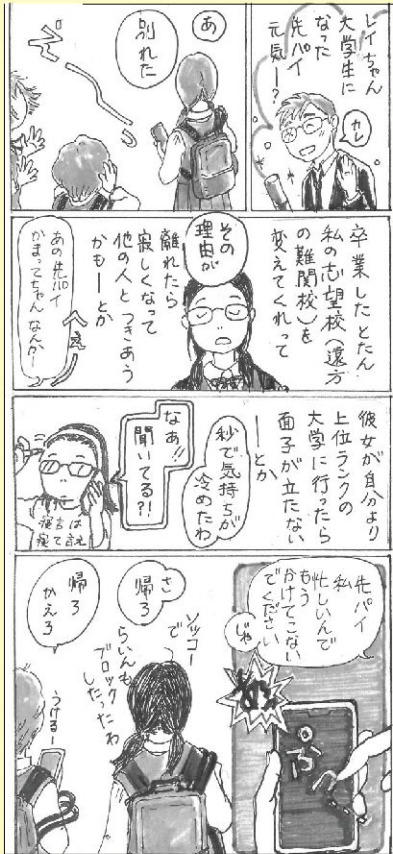 レイちゃん
大学生に
なった
先パイ
元気ー?
カレ
あ
別れた
えーーっ
卒業したとたん
私の志望校(遠方
の難関校)を
変えてくれって
その
理由が
離れたら
寂しくなって
他の人とつきあう
かもーとか
へぇーー
あの先パイ
かまってちゃんなんかー
彼女が自分より
上位ランクの
大学に行ったら
面子が立たない
ーーとか
秒で気持ちが
冷めたわ
なぁ!!
聞いてる?!
寝言は
寝て言え
先パイ
私
忙しいんで
もう
かけてこない
でください
じゃ
ソッコー
で
らいんも
ブロック
したったわ
さ
帰ろ
帰ろ
かえろ
うけるー